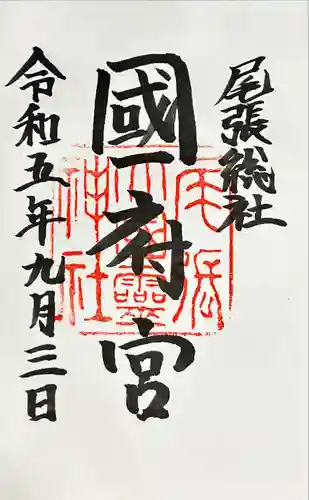 尾張総社
國府宮
令和五年九月三日
尾張
大國霊
神社